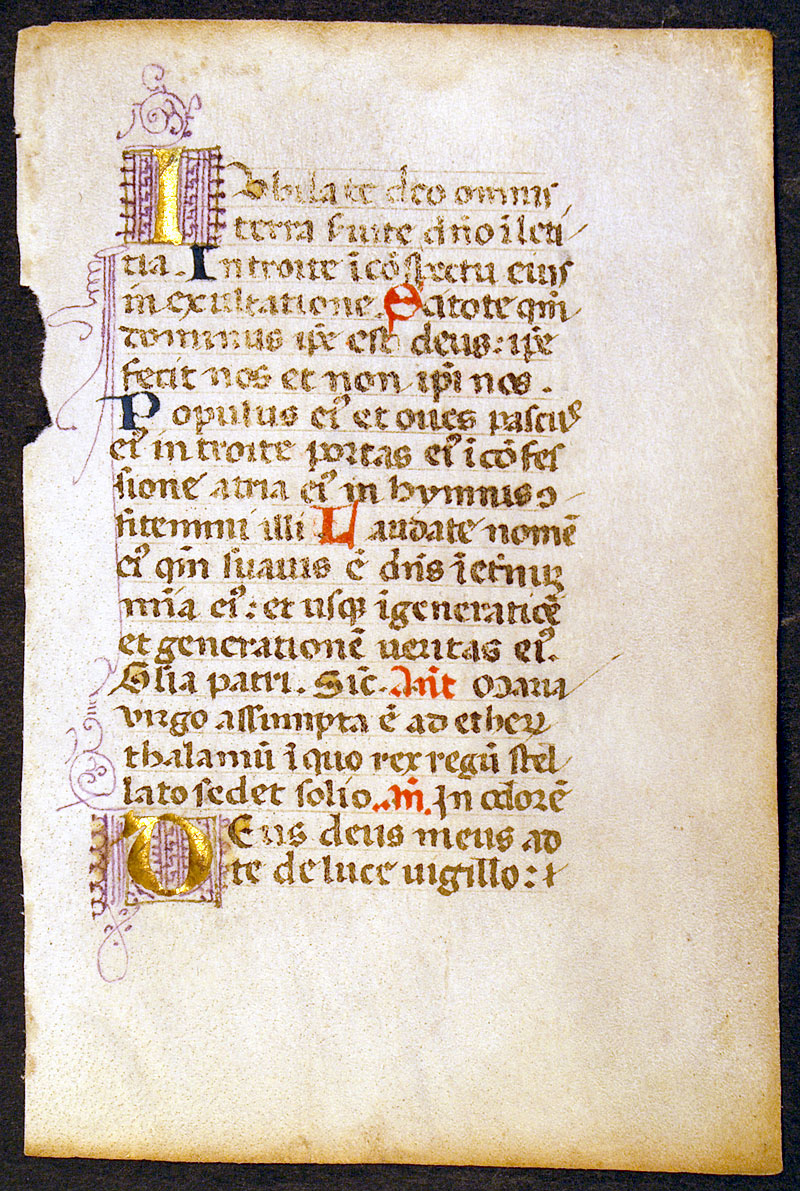 Iubilate deo omnis
terra ẜuite dn̄o ī leti
tia. Introite ī cōspectu eius
in exultatione. Scitote qm̄
dominus ip̄e est deus: ip̄e
fecit nos et non ip̄i nos.
Populus eiꝰ et oues pascuꝰ
eiꝰ introite portas eiꝰ ī cōfes
sione atria eiꝰ in hymnis ꝯ
fitemini illi Laudate nomē
eiꝰ qm̄ suauis ē dn̄s ī et̄nuꝫ
mīa eiꝰ: et usqꝫ ī generationē
et generationē ueritas eiꝰ.
Gl̄ia patri. Sic̄. Ant̄ Maria
uirgo assumpta ē ad ethereū
thalamū ī quo rex regū stel
lato sedet solio. An̄. In odorē
DEus deus meus ad
te de luce uigillo: